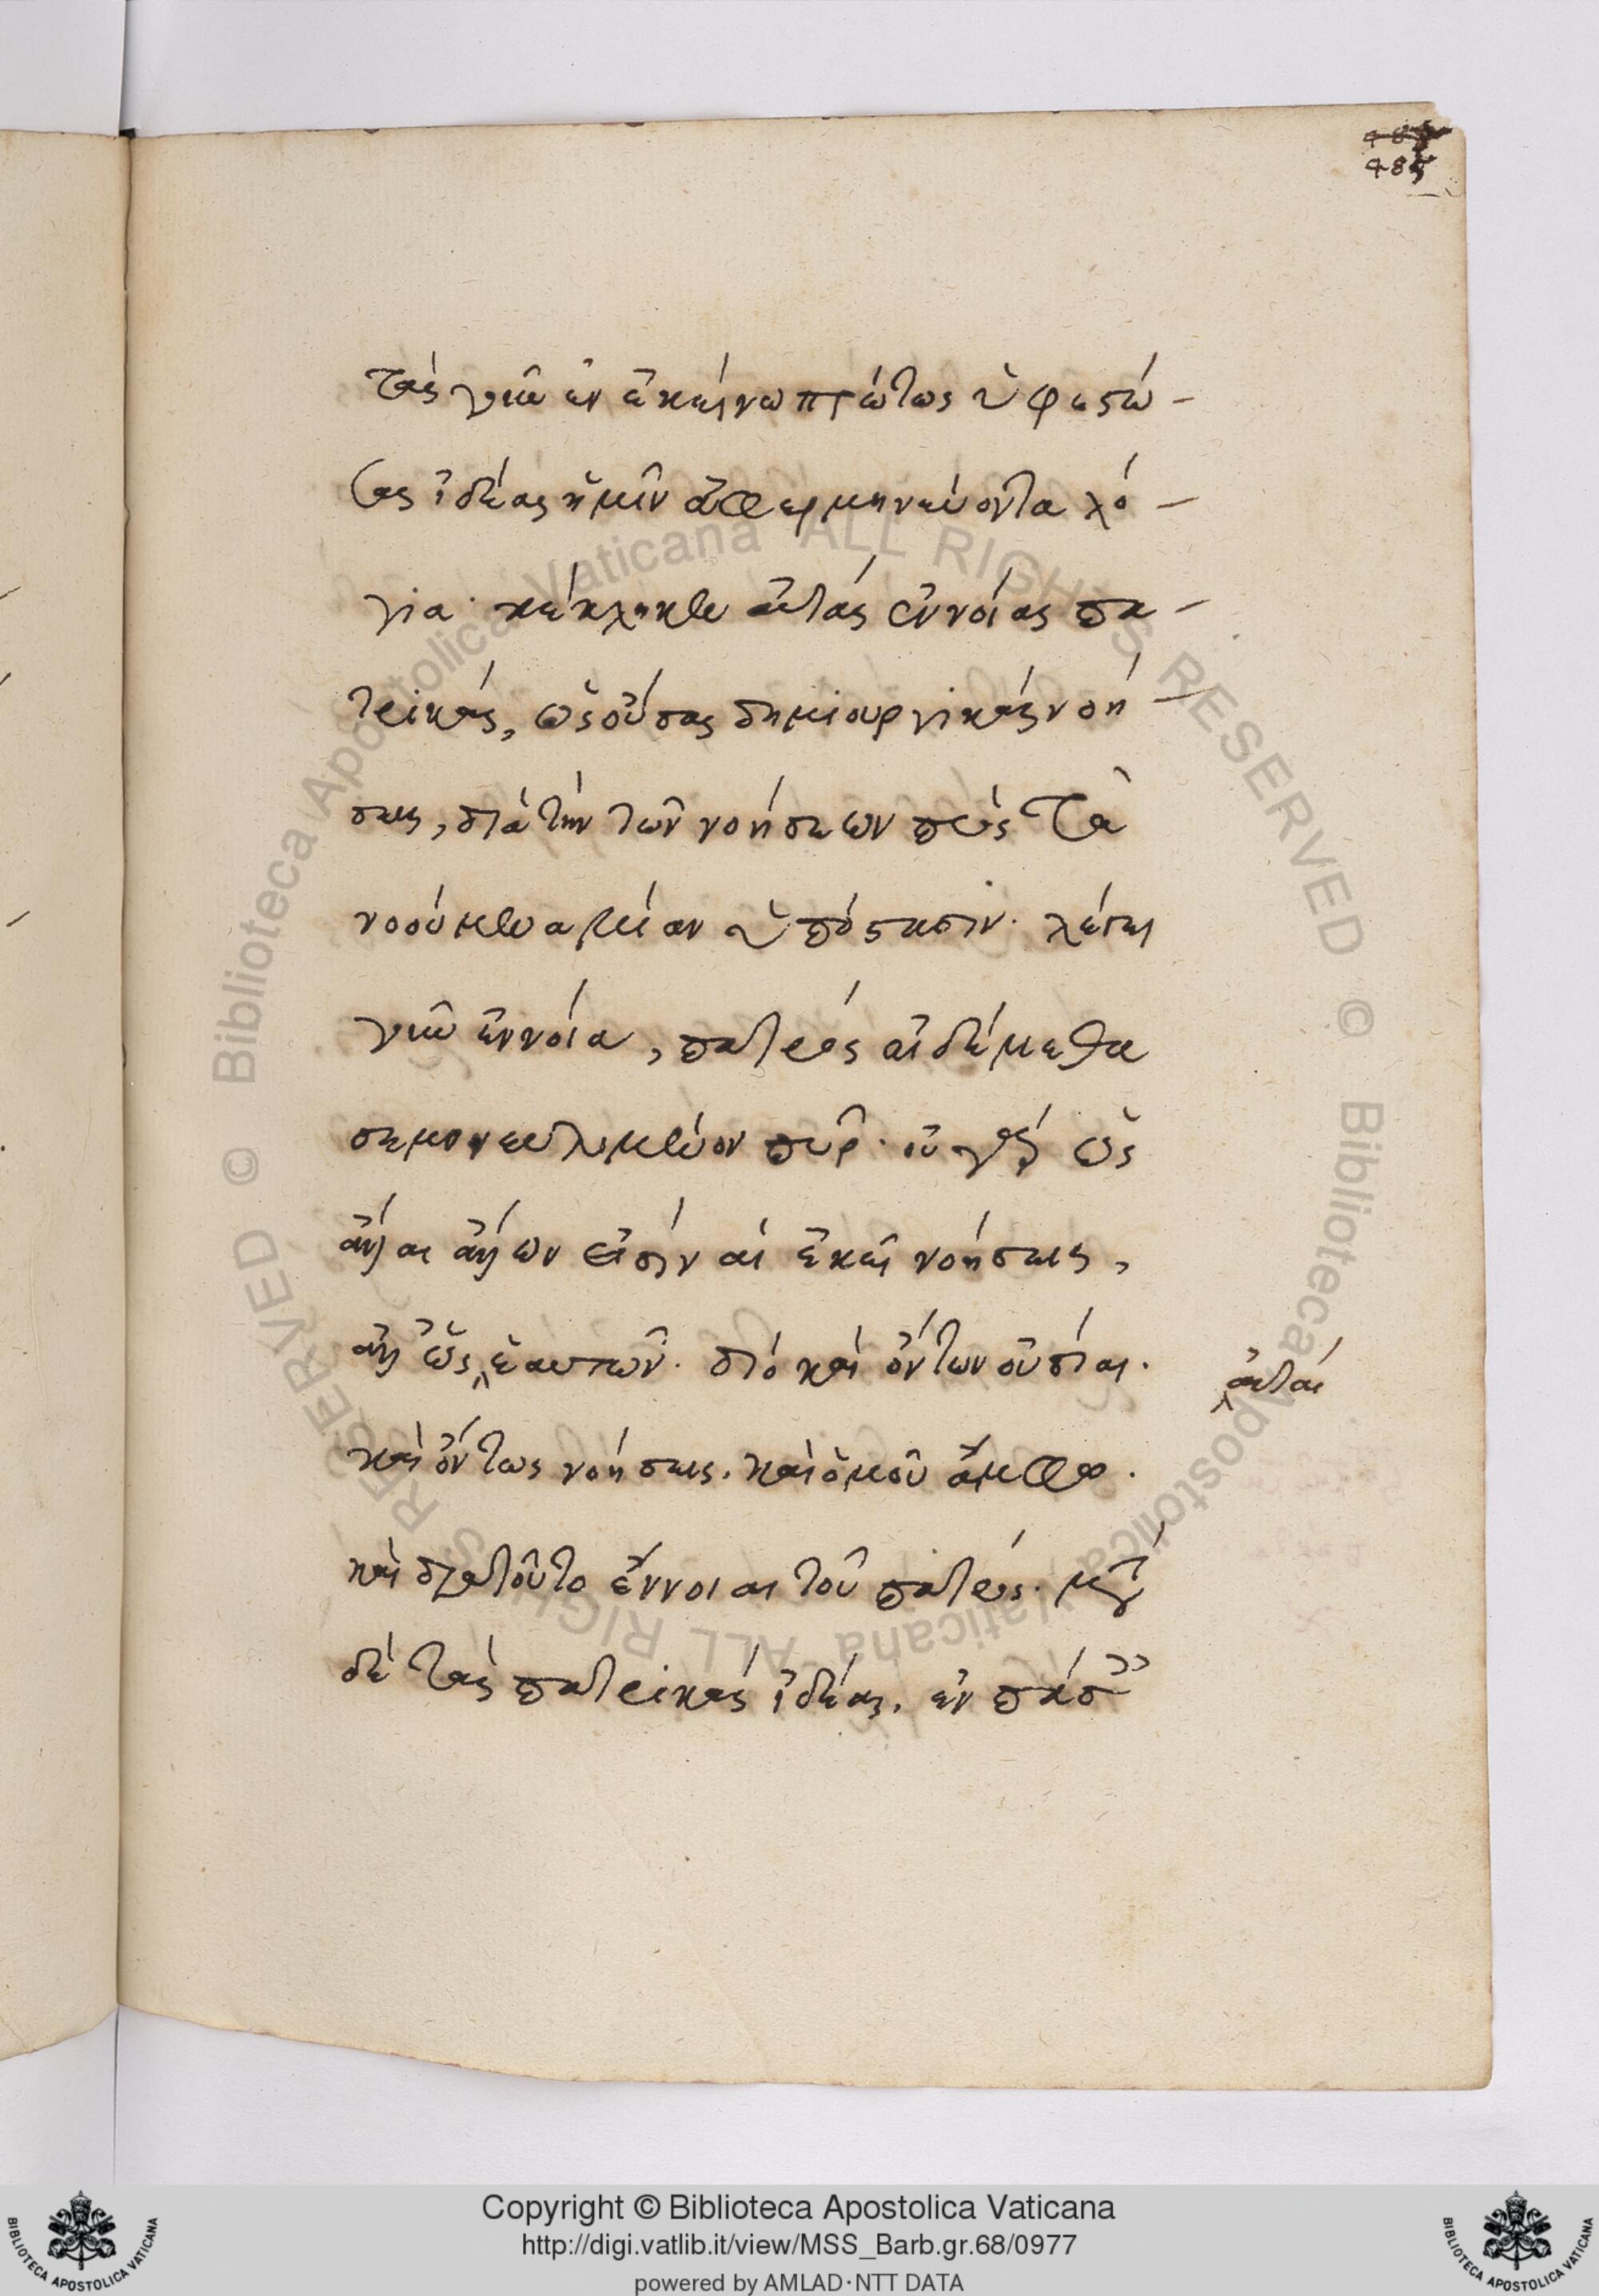 485
τὰς γοῦν ἐν ἐκείνω πρώτως ὑφεστώ-
σας ἰδέας ἡμῖν ἀφερμηνεύοντα λό-
για· κέκληκεν αὐτὰς ἐννοίας πα-
τρικάς, ὡς οὔσας δημιουργικὰς νοή-
σεις, διὰ τὴν τῶν νοήσεων πρὸς τὰ
νοούμενα μίαν ὑπόστασιν. λέγει
γοῦν ἐννοία, πατρὸς
πῦρ. οὐ γὰρ ὡς
ἄλλαι ἄλλων εἰσὶν αἱ ἐκεῖ νοήσεις,
ἀλλ' ὡς ἑαυτῶν. διὸ καὶ ὄντων οὐσίαι.
αὐταὶ
καὶ ὄντως νοήσεις. καὶ ὁμοῦ ἄμφω.
καὶ διατοῦτο ἔννοιαι τοῦ πατρός. μετὰ
δὲ τὰς πατρικὰς ἰδέας, ἐν
Copyright © Biblioteca Apostolica Vaticana
http://digi.vatlib.it/view/MSS_Barb.gr.68/0977
powered by AMLAD·NTT DATA
BIBLIOTECA APOSTOLICA VATICANA
BIBLIOTECA APOSTOLICA VATICANA
© Biblioteca Apostolica Vaticana ALL RIGHTS RESERVED © Biblioteca Apostolica Vaticana ALL RIGHTS RESERVED